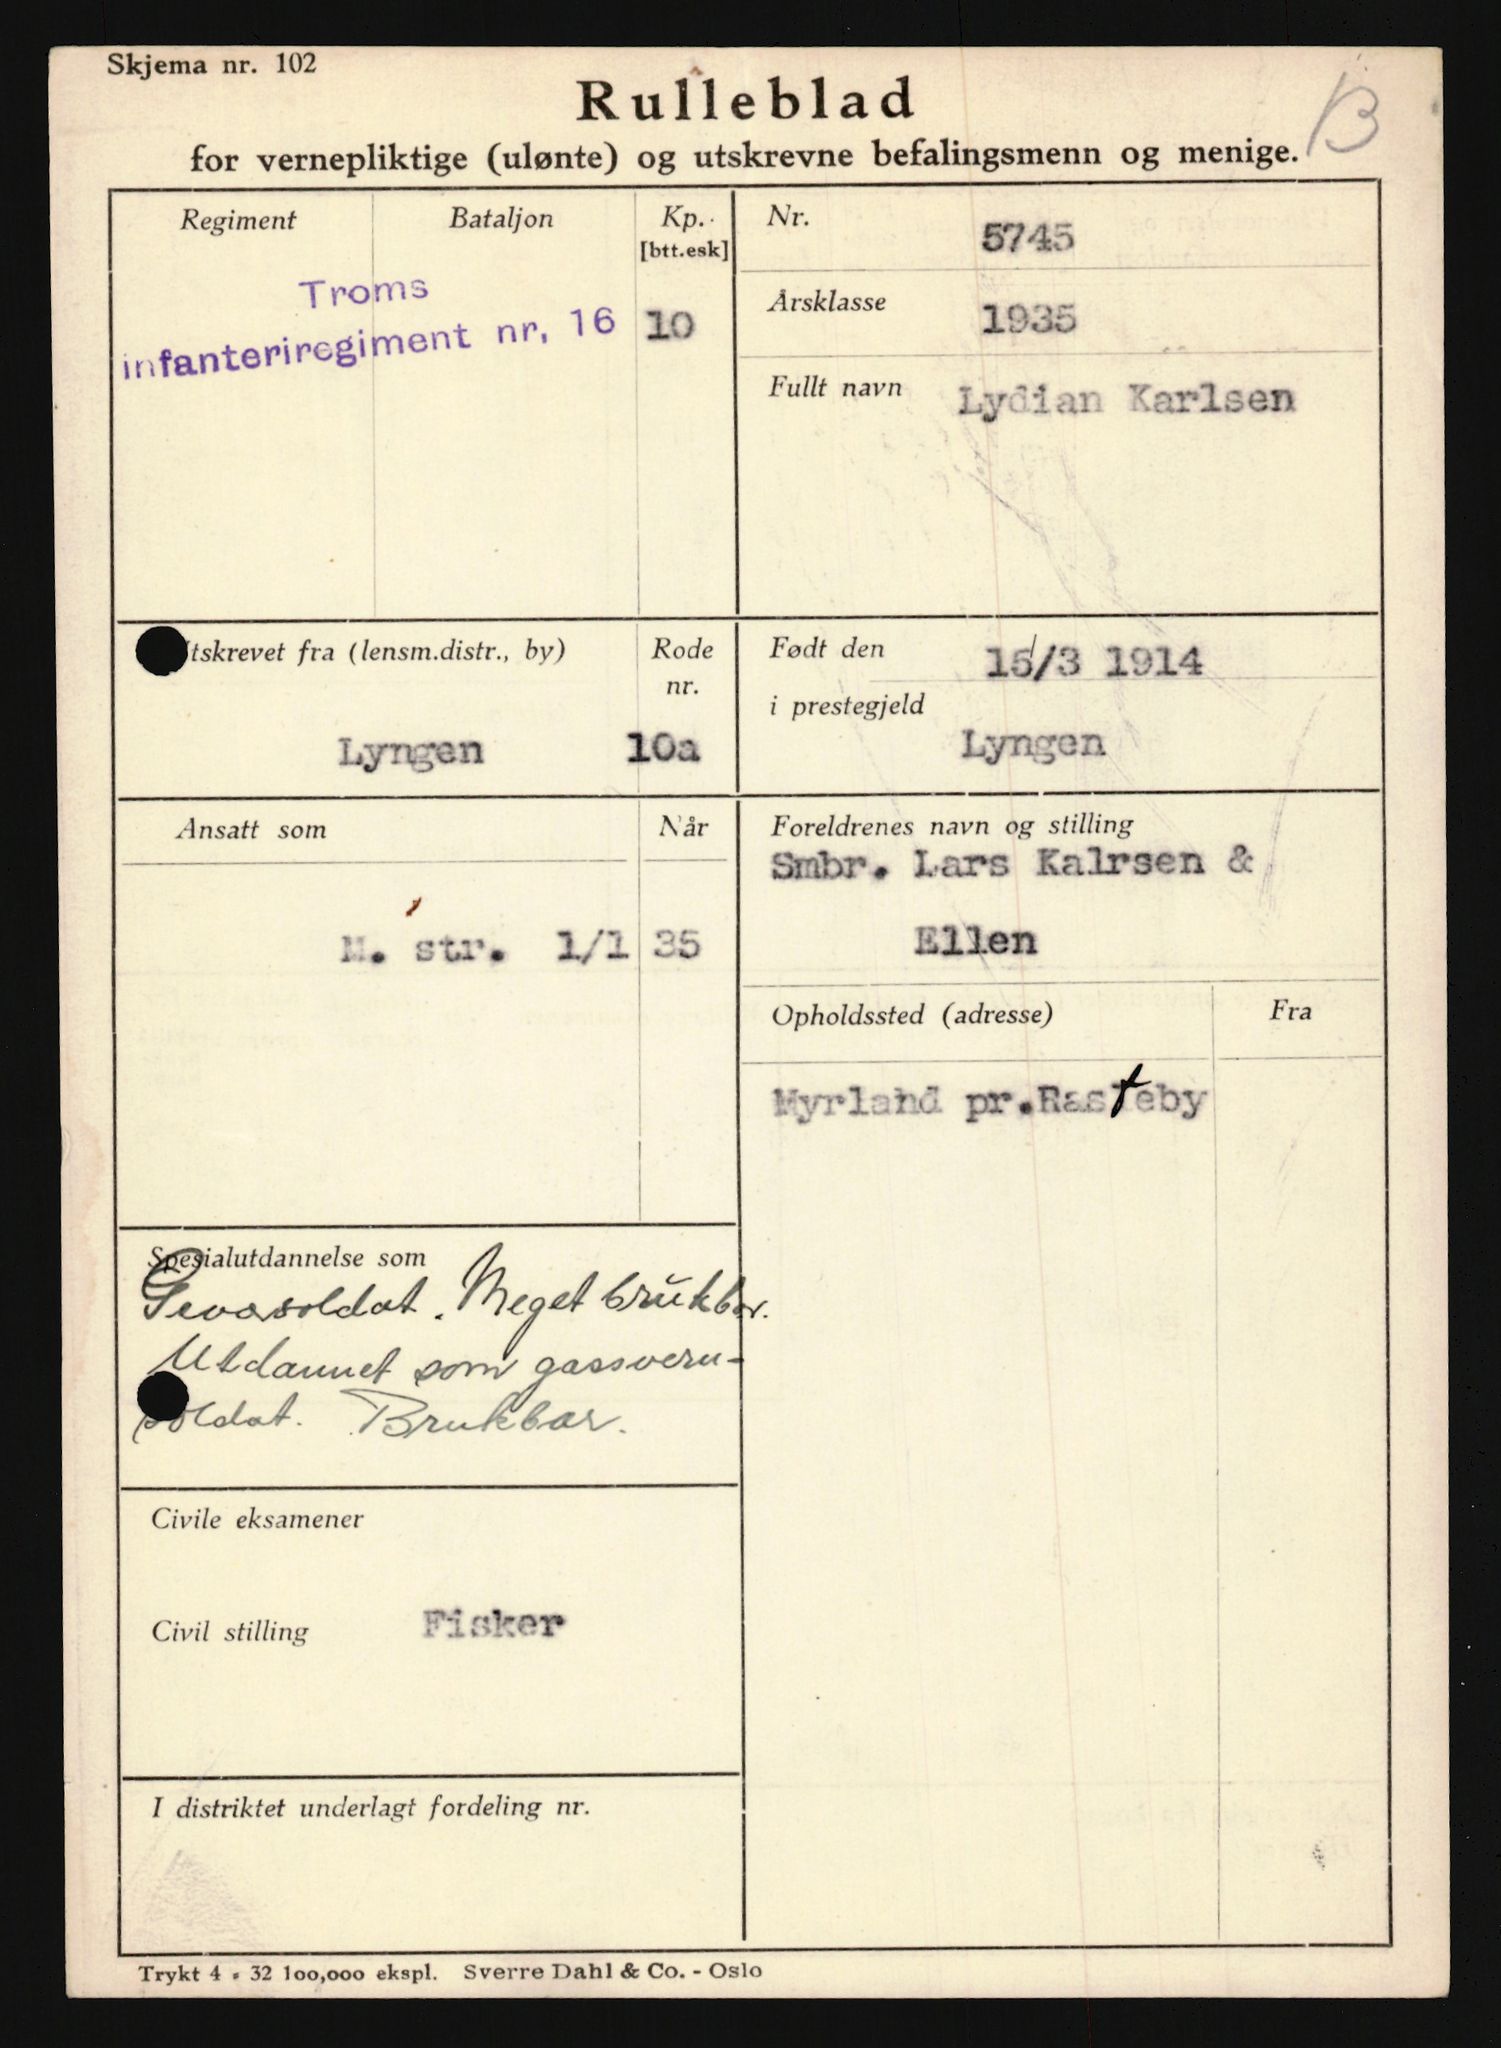 Skjema nr. 102
Rulleblad
B
for vernepliktige (ulønte) og utskrevne befalingsmenn og menige.
Regiment
Bataljon
Kp.
[btt.esk]
Troms
infanteriregiment nr, 16
10
Nr.
5745
Årsklasse
1935
Fullt navn
Lydian Karlsen
tskrevet fra (lensm.distr., by)
Rode
nr.
Lyngen
10a
Født den
15/3 1914
i prestegjeld
Lyngen
Ansatt som
Når
M. str. 1/1 35
Foreldrenes navn og stilling
Smbr. Lars Kalrsen &
Ellen
Opholdssted (adresse)
Fra
Myrland pr.Rasteby
Spesialutdannelse som
Meget brukbar.
Utdannet som gassvern-
soldat. Brukbar.
Civile eksamener
Civil stilling
Fisker
I distriktet underlagt fordeling nr.
Trykt 4 - 32 100,000 ekspl. Sverre Dahl & Co. - Oslo